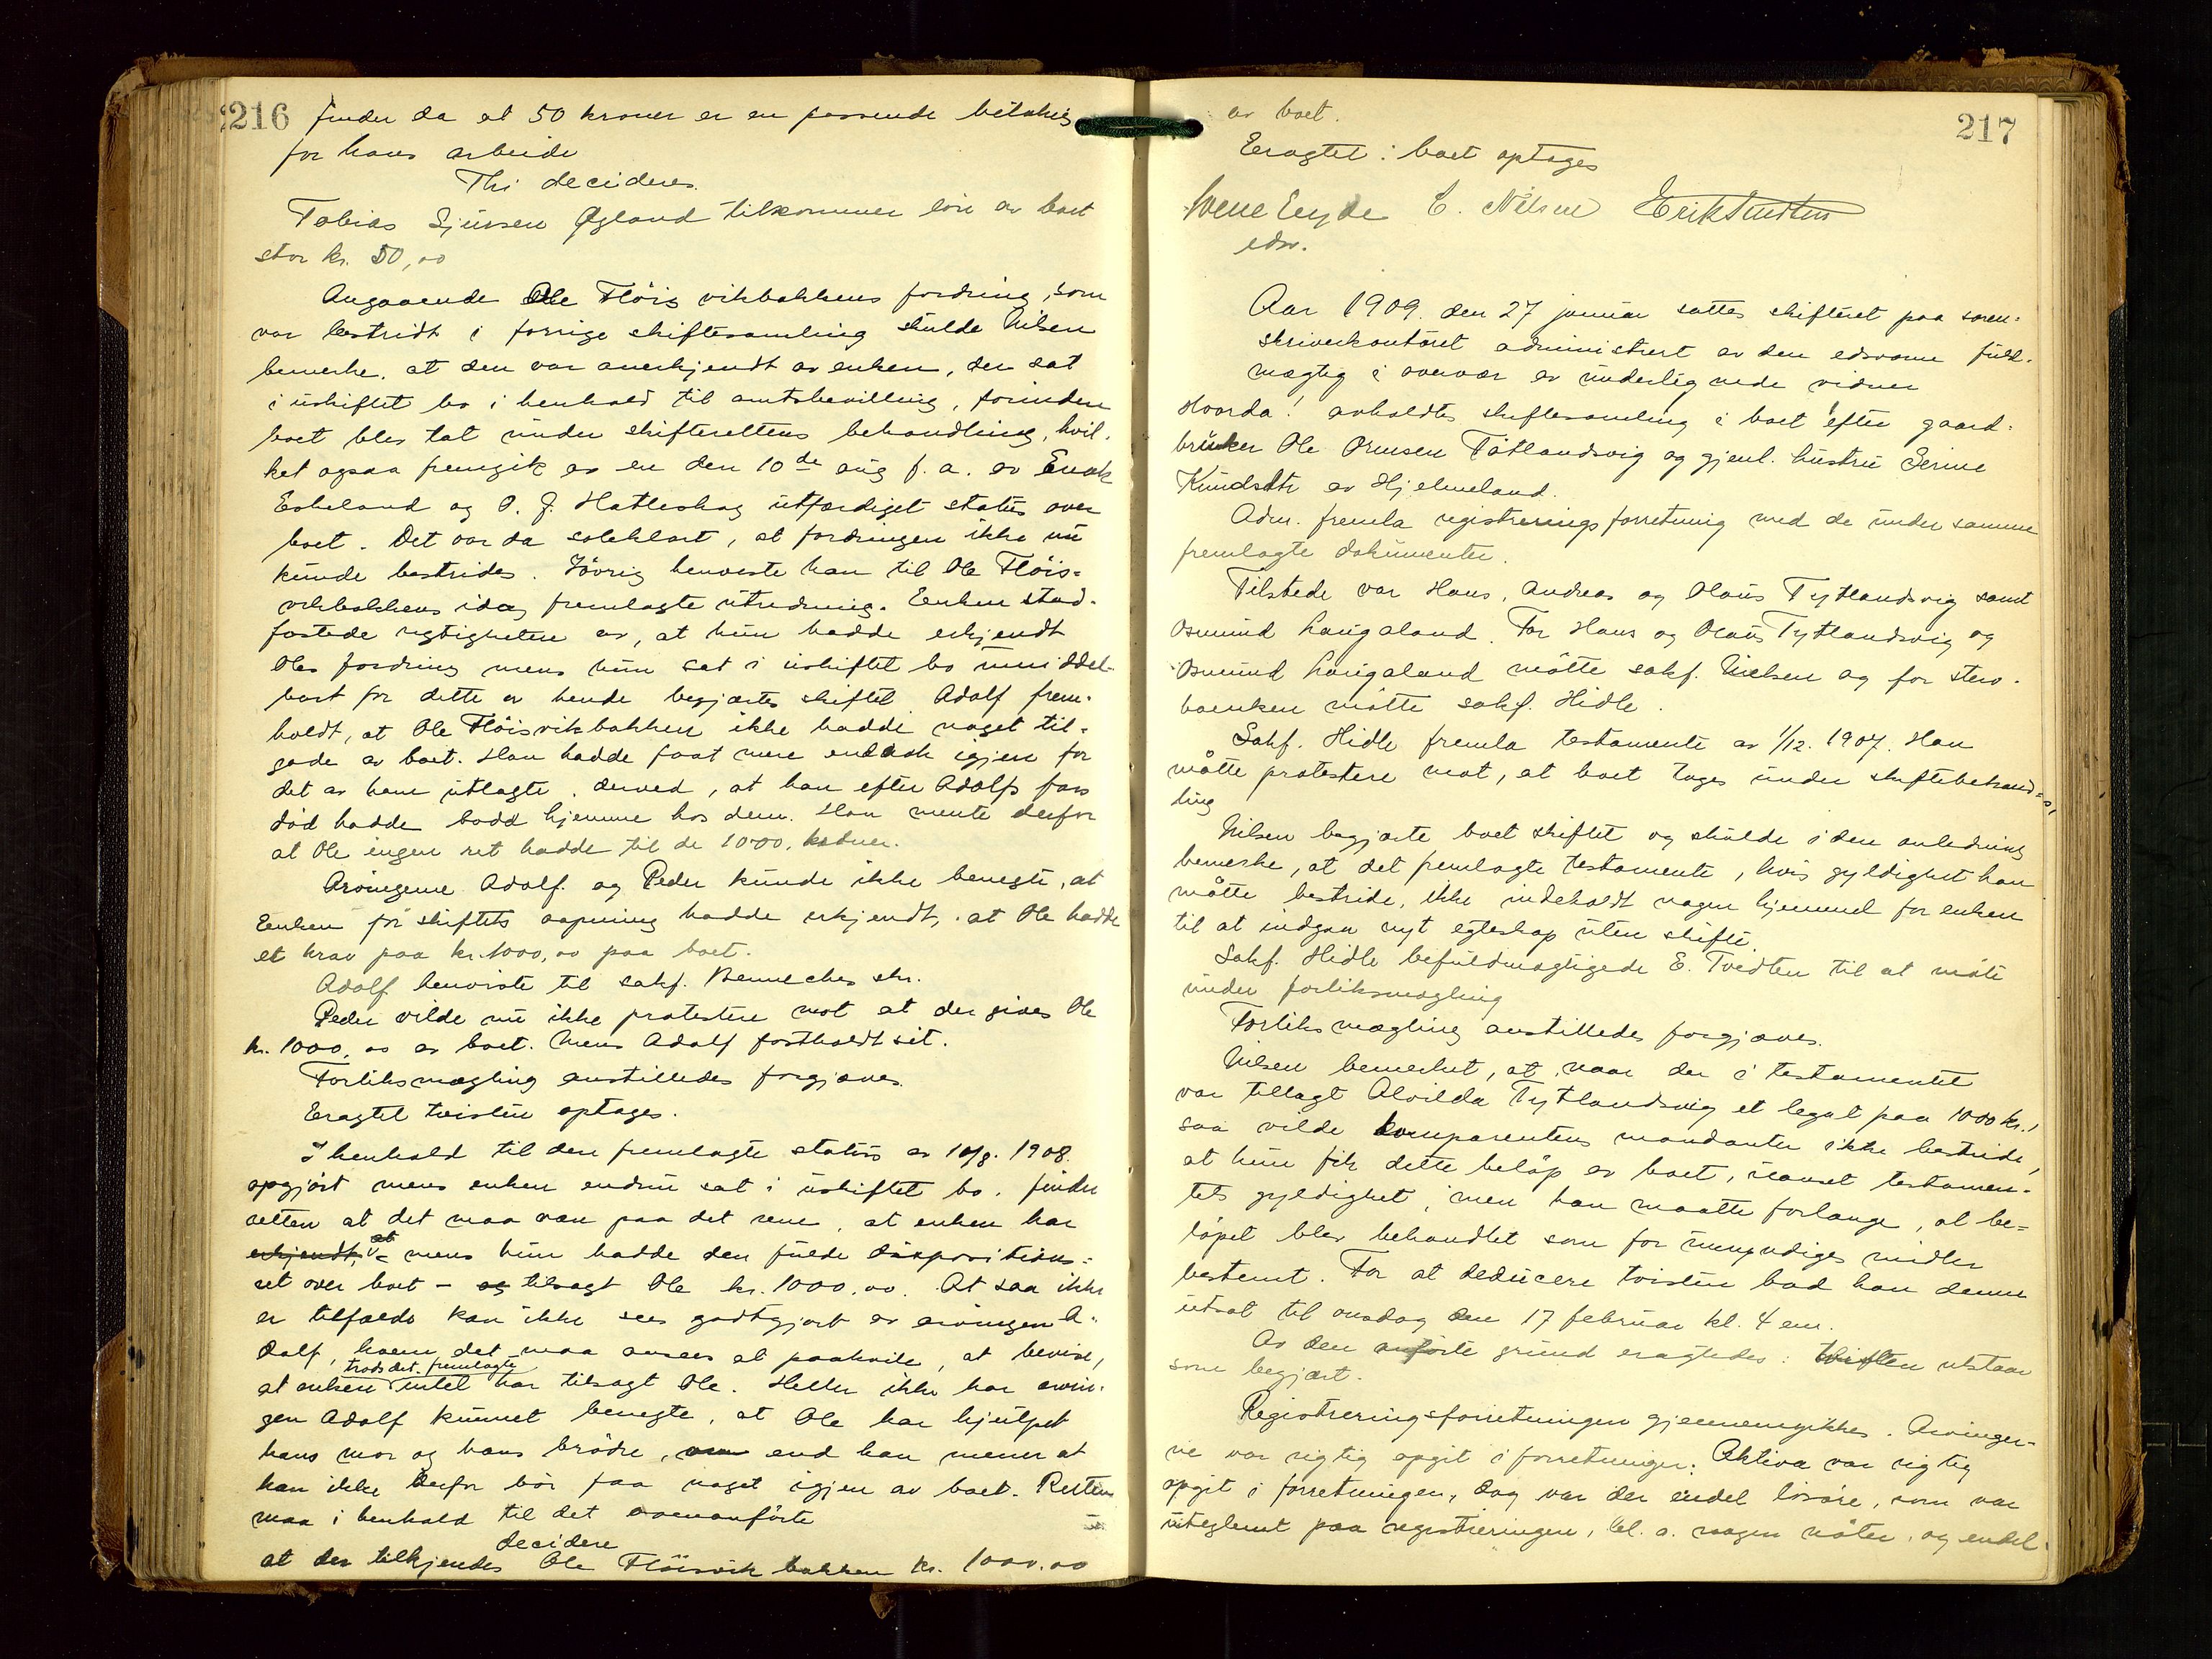 216
finder da at 50 kroner er en passende betaling
for hans arbeide
Thi decideres.
Tobias Sjursen Øgland tilkommer løn av boet
stor kr. 50,00
Angaaende Ole Fløisvikbakkens fordring, som
var bestridt i forrige skiftesamling skulde Nilsen
bemerke, at den var anerkjendt av enken, der sat
i uskiftet bo i henhold til amtsbevilling, forinden
boet blev tat under skifterettens behandling, hvil-
ket ogsaa fremgik av en den 10de aug f. a. av Enok
Eskeland og O. J. Hatleskog utfærdiget status over
boet. Det var da soleklart, at fordringen ikke nu
kunde bestrides. Iøvrig henviste han til Ole Fløis-
vikbakkens idag fremlagte utredning. Enken stad-
fæstede rigtigheten av, at hun hadde erkjendt
Oles fordring mens hun sat i uskiftet bo umiddel-
bart før dette av hende begjærtes skiftet. Adolf frem-
holdt, at Ole Fløisvikbakken ikke hadde noget til-
gode av boet. Han hadde faat mere end nok igjen for
det av ham utlagte, derved, at han efter Adolfs fars
død hadde bodd hjemme hos dem. Han mente derfor
at Ole ingen ret hadde til de 1000, kroner.
Arvingerne Adolf og Peder kunde ikke benegte, at
Enken før skiftets aapning hadde erkjendt, at Ole hadde
et krav paa kr. 1000,00 paa boet.
Adolf henviste til sakf. Benneches skr.
Peder vilde nu ikke protestere mot at der gives Ole
kr. 1000,00 av boet. Mens Adolf fastholdt sit.
Forliksmægling anstilledes forgjæves.
Eragtet tvisten optages.
I henhold til den fremlagte status av 10/8. 1908.
opgjort mens enken endnu sat i uskiftet bo, finder
retten at det maa være paa det rene, at enken har
erkjendt, at – mens hun hadde den fulde dispositions-
ret over boet – og tilsagt Ole kr. 1000,00. At saa ikke
er tilfælde kan ikke sees godtgjort av arvingen A-
dolf, hvem det maa ansees at paahvile, at bevise,
trods det fremlagte
at enken intet har tilsagt Ole. Heller ikke har arvin-
gen Adolf kunnet benegte, at Ole har hjulpet
hans mor og hans brødre, om end han mener at
han ikke derfor bør faa noget igjen av boet. Retten
maa i henhold til det ovenanførte
decidere
at der tilkjendes Ole Fløisvikbakken kr. 1000.00
217
av boet.
Eragtet: boet optages
C. Nilsen Erik Knudsen
edsv.
Aar 1909. den 27 januar sattes skifteret paa soren-
skriverkontoret administrert av den edsvorne fuld-
mægtig i overvær av underlignede vidner
Hvorda! avholdtes skiftesamling i boet efter gaard-
bruker Ole Ormsen Tøtlandsvig og gjenl. hustru Serine
Knudsdtr av Hjelmeland.
Adm. fremla registreringsforretning med de under samme
fremlagte dokumenter.
Tilstede var Hans, Andreas og Olaus Tytlandsvig samt
Osmund Laugaland. For Hans og Olaus Tytlandsvig og
Osmund Laugaland møtte sakf. Nielsen og for sterv-
boenken møtte sakf. Hidle.
Sakf. Hidle fremla testamente av 1/12. 1907. Han
møtte protestere mot, at boet toges under skiftebehand-
ling
Nilsen begjærte boet skiftet og skulde i den anledning
bemerke, at det fremlagte testamente, hvis gyldighet han
møtte bestride, ikke indeholdt nogen hjemmel for enken
til at indgaa nyt egteskap uten skifte.
Sakf. Hidle befuldmægtigede E. Tvedten til at møte
under forliksmægling
Forliksmægling anstilledes forgjæves.
Nilsen bemerket, at, naar der i testamentet
var tillagt Alvilda Tytlandsvig et legat paa 1000 kr.,
saa vilde komparentens mandanter ikke bestride,
at hun fik dette beløp av boet, uanset testamen-
tets gyldighet, men han maatte forlange, at be-
løpet blev behandlet som for umyndiges midler
bestemt. For at deducere tvisten bad han denne
utsat til onsdag den 17 februar kl. 4 em.
Av den anførte grund eragtedes: tvisten utstaar
som begjært.
Registreringsforretningen gjennemgikkes. Arvinger-
ne var rigtig opgit i forretningen. Aktiva var rigtig
opgit i forretningen, dog var der endel løsøre, som var
uteglemt paa registreringen, bl. a. nogen nøter, og endel